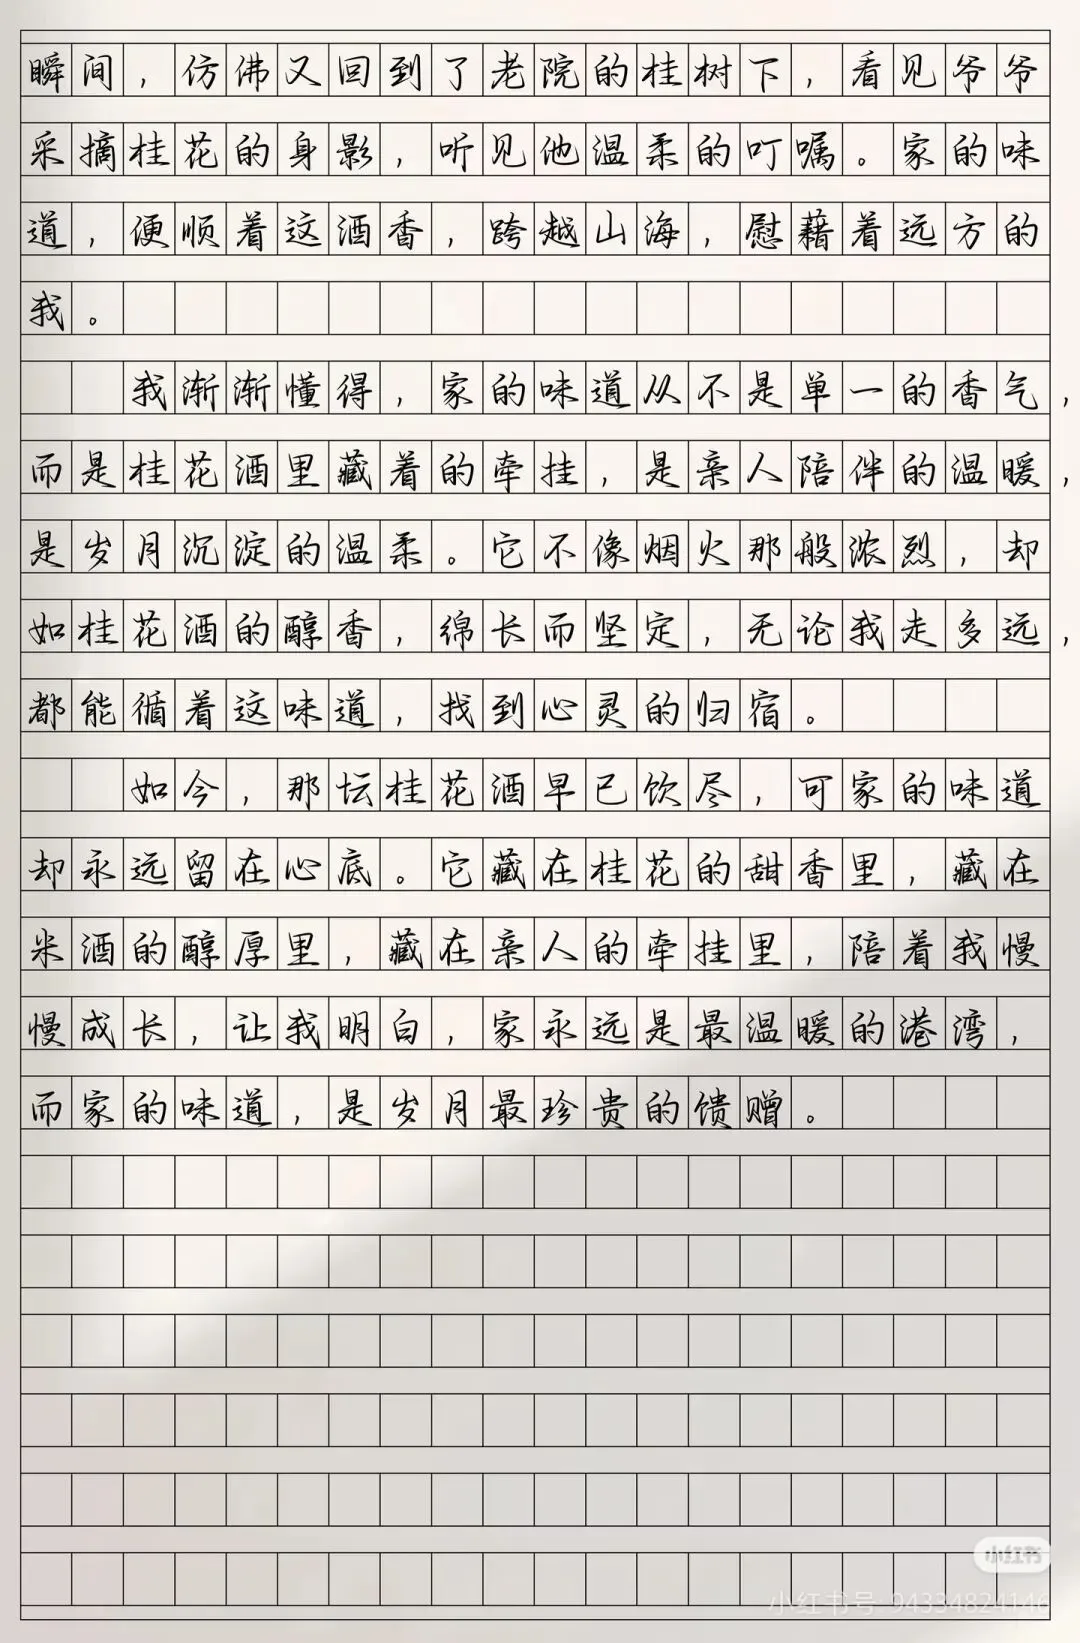 瞬间，仿佛又回到了老院的桂树下，看见爷爷
采摘桂花的身影，听见他温柔的叮嘱。家的味
道，便顺着这酒香，跨越山海，慰藉着远方的
我。
我渐渐懂得，家的味道从不是单一的香气，
而是桂花酒里藏着的牵挂，是亲人陪伴的温暖，
是岁月沉淀的温柔。它不像烟火那般浓烈，却
如桂花酒的醇香，绵长而坚定，无论我走多远，
都能循着这味道，找到心灵的归宿。
如今，那坛桂花酒早已饮尽，可家的味道
却永远留在心底。它藏在桂花的甜香里，藏在
米酒的醇厚里，藏在亲人的牵挂里，陪着我慢
慢成长，让我明白，家永远是最温暖的港湾，
而家的味道，是岁月最珍贵的馈赠。
小红书
小红书号：94334824146